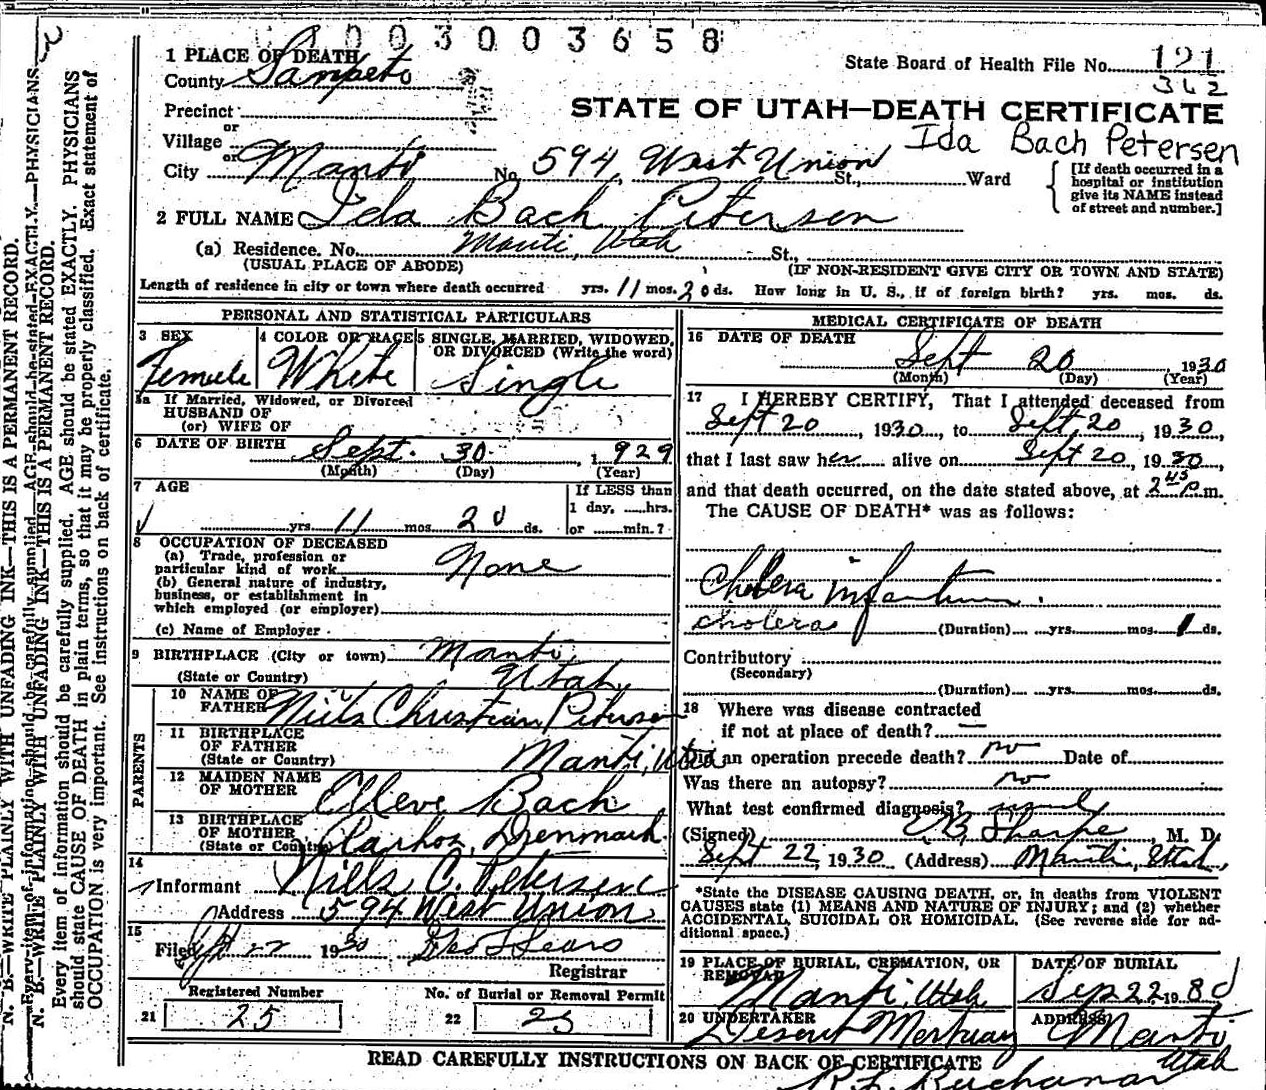 0 0 3 0 0 3 6 5 8
1 PLACE OF DEATH
County Sanpete
State Board of Health File No. 121
362
Precinct
or
STATE OF UTAH—DEATH CERTIFICATE
Ida Bach Petersen
Village
or
City Manti No. 594, West Union St., Ward
[If death occurred in a
hospital or institution
give its NAME instead
of street and number.]
2 FULL NAME Ida Bach Petersen
(a) Residence. No. Manti, Utah St.,
(USUAL PLACE OF ABODE) (IF NON-RESIDENT GIVE CITY OR TOWN AND STATE)
Length of residence in city or town where death occurred yrs. 11 mos. 20 ds. How long in U. S., if of foreign birth? yrs. mos. ds.
PERSONAL AND STATISTICAL PARTICULARS
3 SEX
Female
4 COLOR OR RACE
White
5 SINGLE, MARRIED, WIDOWED,
OR DIVORCED (Write the word)
Single
5a If Married, Widowed, or Divorced
HUSBAND OF
(or) WIFE OF
6 DATE OF BIRTH Sept. 30 1929
(Month) (Day) (Year)
7 AGE
yrs. 11 mos. 20 ds.
If LESS than
1 day, hrs.
or min.?
8 OCCUPATION OF DECEASED
(a) Trade, profession or
particular kind of work None
(b) General nature of industry,
business, or establishment in
which employed (or employer)
(c) Name of Employer
9 BIRTHPLACE (City or town) Manti
(State or Country) Utah
PARENTS
10 NAME OF
FATHER Niels Christian Petersen
11 BIRTHPLACE
OF FATHER
(State or Country) Manti, Utah
12 MAIDEN NAME
OF MOTHER Elleve Bach
13 BIRTHPLACE
OF MOTHER
(State or Country) Denmark
14
Informant Niels C. Petersen
Address 594 West Union
15
Filed 22 1930 Geo Sears
Registrar
Registered Number
21 25
No. of Burial or Removal Permit
22 25
MEDICAL CERTIFICATE OF DEATH
16 DATE OF DEATH
Sept 20 1930
(Month) (Day) (Year)
17 I HEREBY CERTIFY, That I attended deceased from
Sept 20, 1930, to Sept 20, 1930,
that I last saw her alive on Sept 20, 1930,
and that death occurred, on the date stated above, at 2 45 p.m.
The CAUSE OF DEATH* was as follows:
Cholera infantum.
cholera (Duration) yrs. mos. 1 ds.
Contributory
(Secondary)
(Duration) yrs. mos. ds.
18 Where was disease contracted
if not at place of death? —
Did an operation precede death? no Date of
Was there an autopsy? no
What test confirmed diagnosis?
(Signed) Sharpe, M. D.
Sept 22, 1930 (Address) Manti, Utah,
*State the DISEASE CAUSING DEATH, or, in deaths from VIOLENT
CAUSES state (1) MEANS AND NATURE OF INJURY; and (2) whether
ACCIDENTAL, SUICIDAL OR HOMICIDAL. (See reverse side for ad-
ditional space.)
19 PLACE OF BURIAL, CREMATION, OR
REMOVAL
Manti, Utah
DATE OF BURIAL
Sep 22 19
20 UNDERTAKER
Deseret Mortuary
ADDRESS
Manti
Utah
READ CAREFULLY INSTRUCTIONS ON BACK OF CERTIFICATE
Buchanan
N. B.—WRITE PLAINLY WITH UNFADING INK—THIS IS A PERMANENT RECORD.
Every item of information should be carefully supplied. AGE should be stated EXACTLY. PHYSICIANS
N. B.—WRITE PLAINLY WITH UNFADING INK—THIS IS A PERMANENT RECORD.
Every item of information should be carefully supplied. AGE should be stated EXACTLY. PHYSICIANS
should state CAUSE OF DEATH in plain terms, so that it may be properly classified. Exact statement of
OCCUPATION is very important. See instructions on back of certificate.